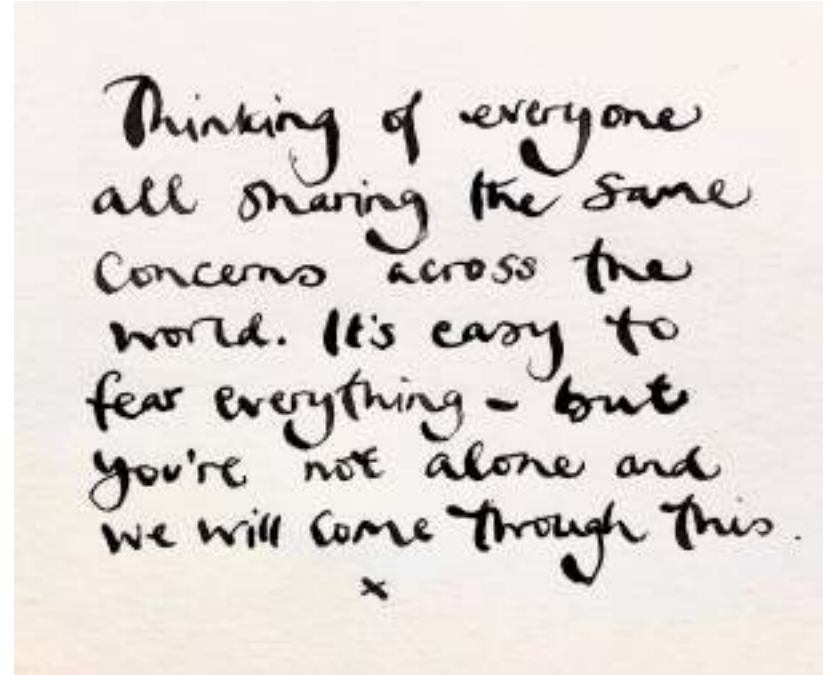 Thinking of everyone
all sharing the same
concerns across the
world. It's easy to
fear everything - but
you're not alone and
we will come through this.
x